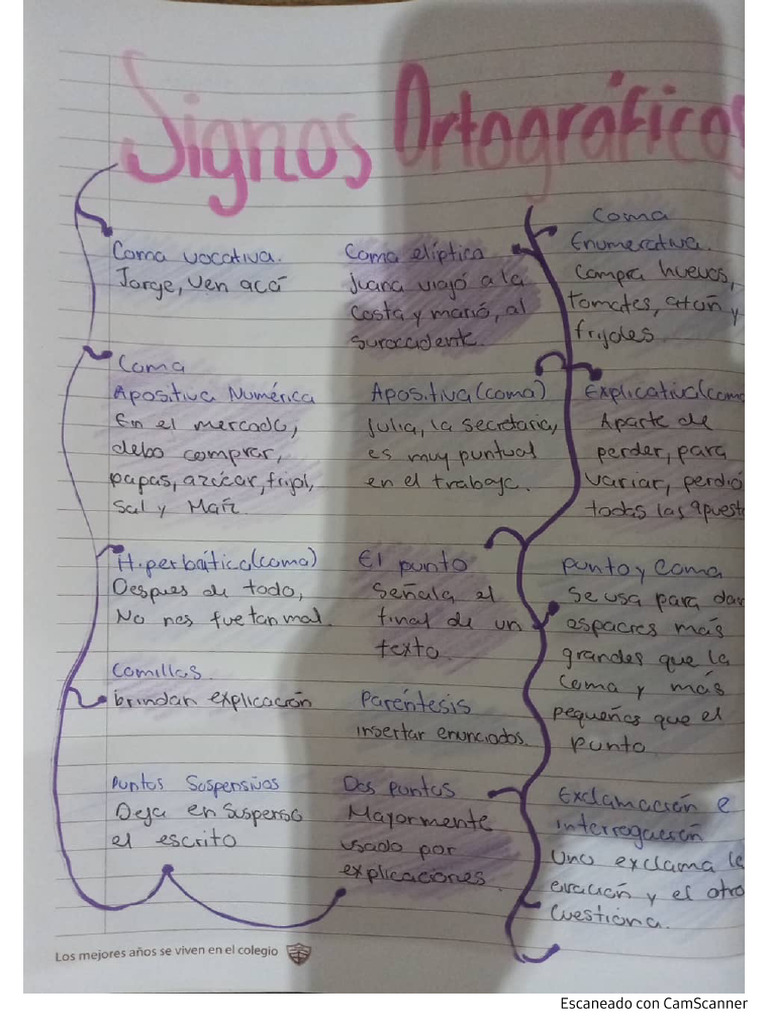 Signos Ortográficos
Coma vocativa.
Jorge, ven acá
Coma elíptica
juana viajó a la
Costa y mario, al
suroccidente.
Coma
Enumerativa.
Compra huevos,
tomates, atún y
frijoles.
Coma
Apositiva Numérica
En el mercado,
debo comprar,
papas, azúcar, frijol,
Sal y Maíz.
Apositiva (coma)
Julia, la secretaria,
es muy puntual
en el trabajo.
Explicativa (coma
Aparte de
perder, para
variar, perdió
todas las apuest
Hiperbática (coma)
Despues de todo,
No nos fue tan mal.
El punto
Señala el
final de un
texto.
Punto y Coma
Se usa para dar
espacios más
grandes que la
Coma y más
pequeños que el
punto.
Comillas.
brindan explicación
Paréntesis
insertar enunciados.
Puntos Suspensivos
Deja en suspenso
el escrito
Dos puntos
Mayormente
usado por
explicaciones.
Exclamación e
interrogación
Uno exclama la
y el otro
Cuestiona.
Los mejores años se viven en el colegio
Escaneado con CamScanner